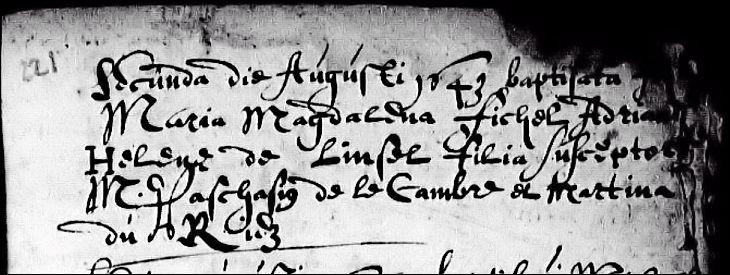 221
Secunda die Augusti 1643 baptisata
Maria Magdalena Fichel Adrian
Helene de Linsel filia susceptor
M. Paschasi9 de le Cambre et Martina
du Riez